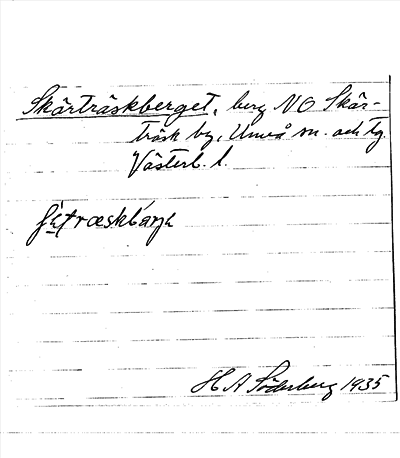 Skärträskberget, berg NO Skär-
träsk by, Umeå sn. och tg.
Västerb. l.
H A Söderberg 1935